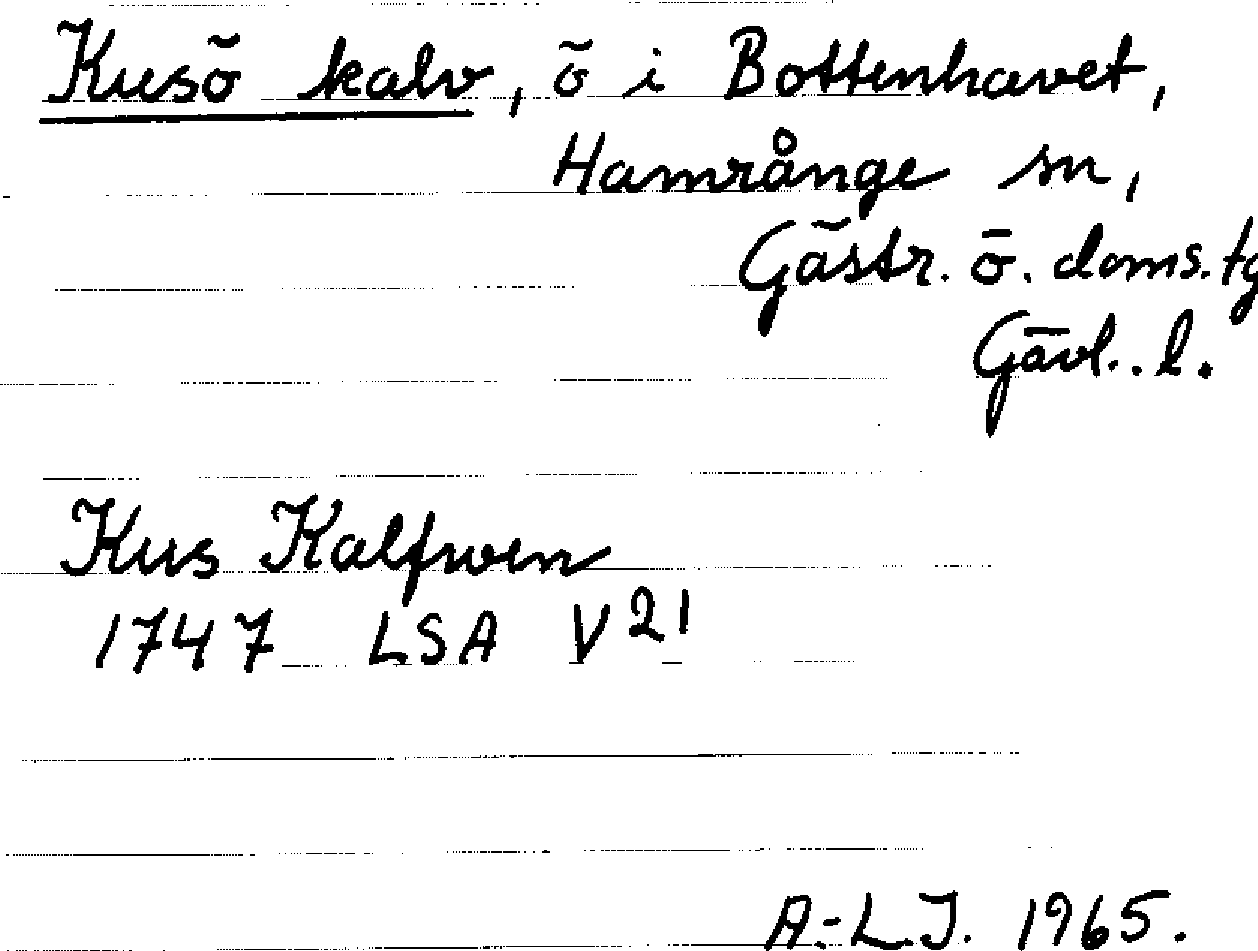 Kusö kalv, ö i Bottenhavet,
Hamrånge sn,
Gästr. ö. doms.tg
Gävl. l.
Kus Kalfwen
1747 LSA V 21
A.-L.J. 1965.